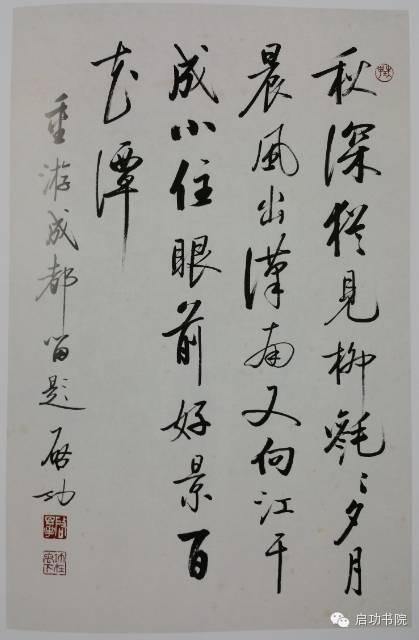 秋深犹見柳毿〻夕月
晨風出漢南又向江干
成小住眼前好景百
花潭
重游成都留題 啓功
启功书院